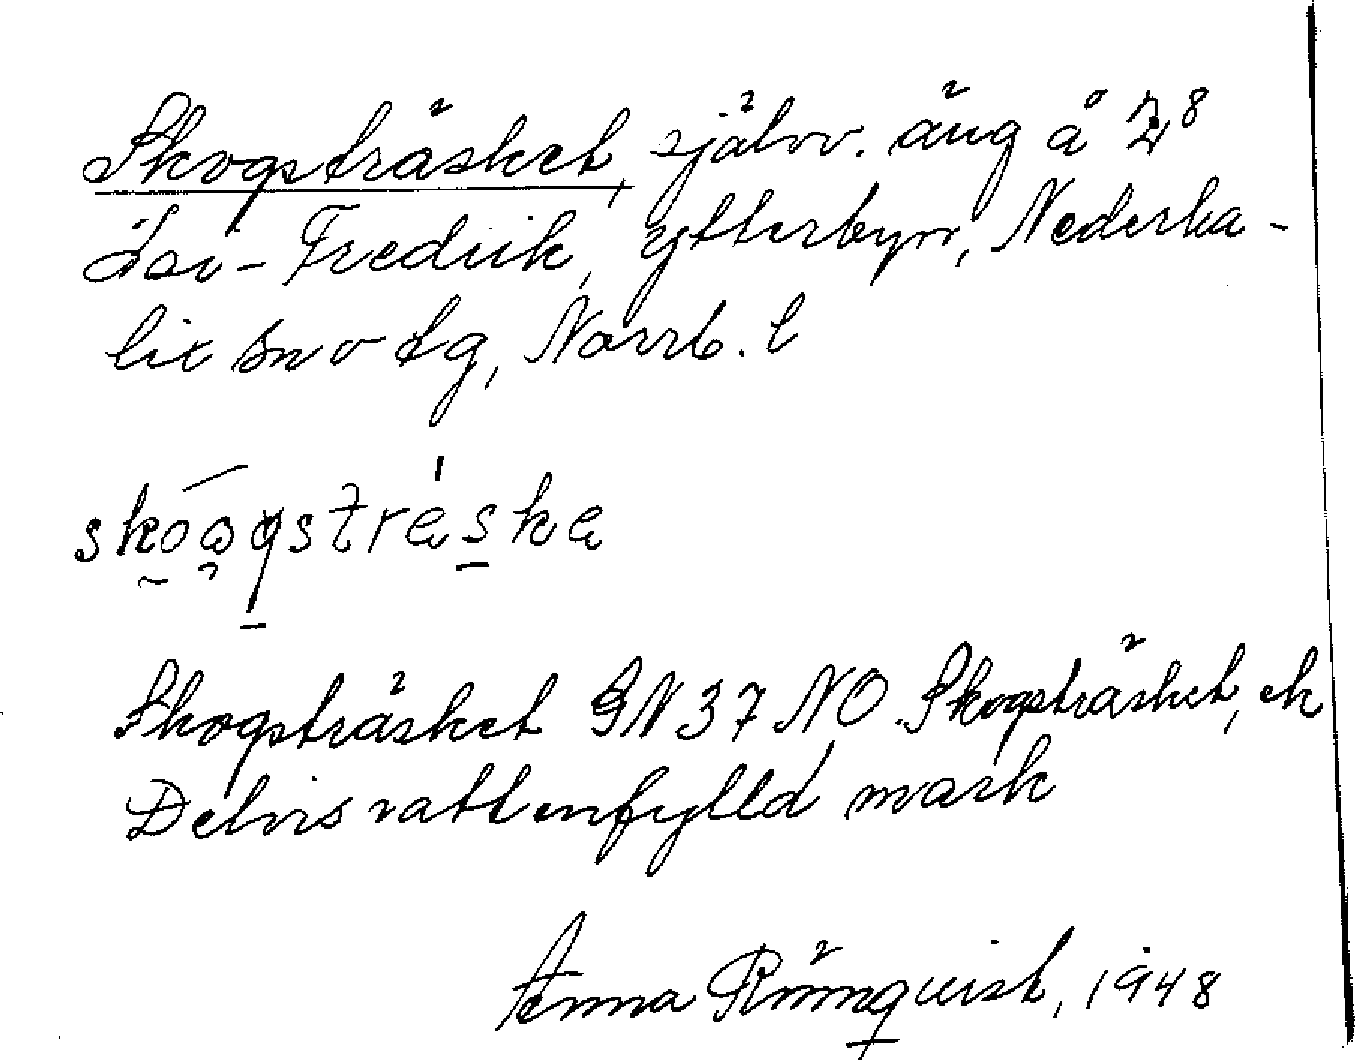 Skogsträsket, självv. äng å 2⁸
Lar-Fredrik, Ytterbyn, Nederka-
lix sn o tg, Norrb. l
skóågsträske
Skogsträsket GN 37 NO Skogsträsket, ek
Delvis vattenfylld mark
Anna Rönnquist, 1948